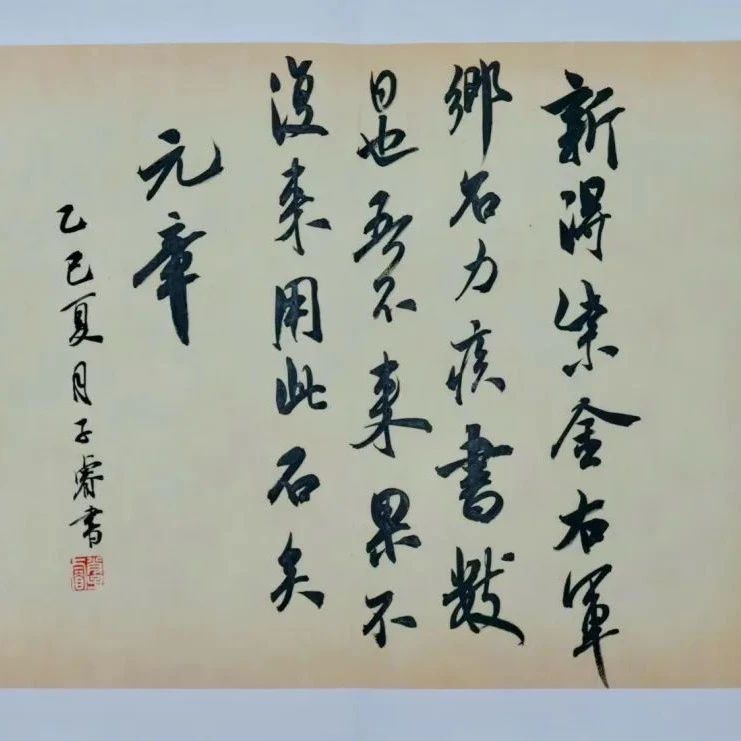 新得紫金右軍
鄉石力疾書數
日也吾不來果不
復來用此石矣
元章
乙巳夏月子睿書